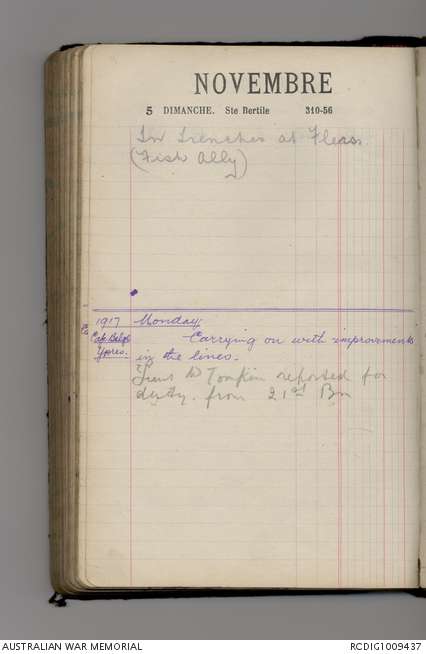 NOVEMBRE
5 DIMANCHE. Ste Bertile 310-56
In Trenches at Flears
(Fish Ally)
1917 Monday.
Carrying on with improvements
Ypres. in the lines.
Lieut Tomkin reported for
duty. from 21st Bn
AUSTRALIAN WAR MEMORIAL
RCDIG1009437